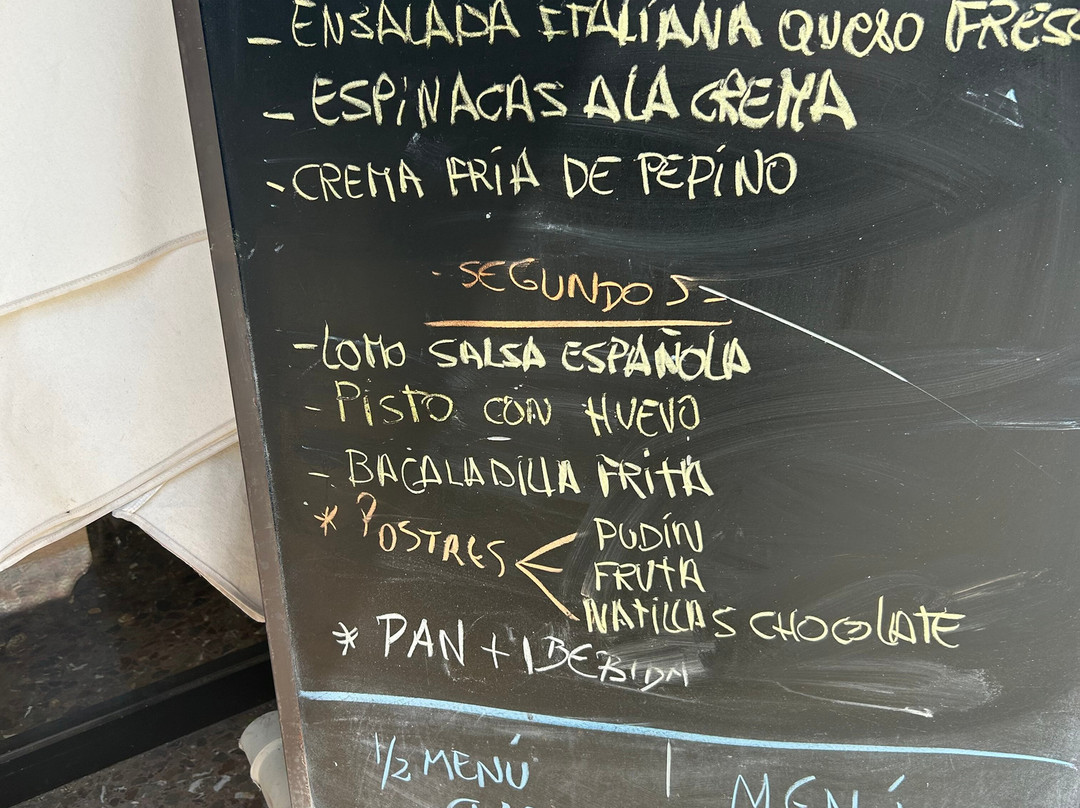 - ENSALADA ITALIANA QUESO FRESC
- ESPINACAS A LA CREMA
- CREMA FRÍA DE PEPINO
- SEGUNDOS -
- LOMO SALSA ESPAÑOLA
- PISTO CON HUEVO
- BACALADILLA FRITA
* POSTRES
PUDÍN
FRUTA
NATILLAS CHOCOLATE
* PAN + 1 BEBIDA
1/2 MENÚ
MENÚ